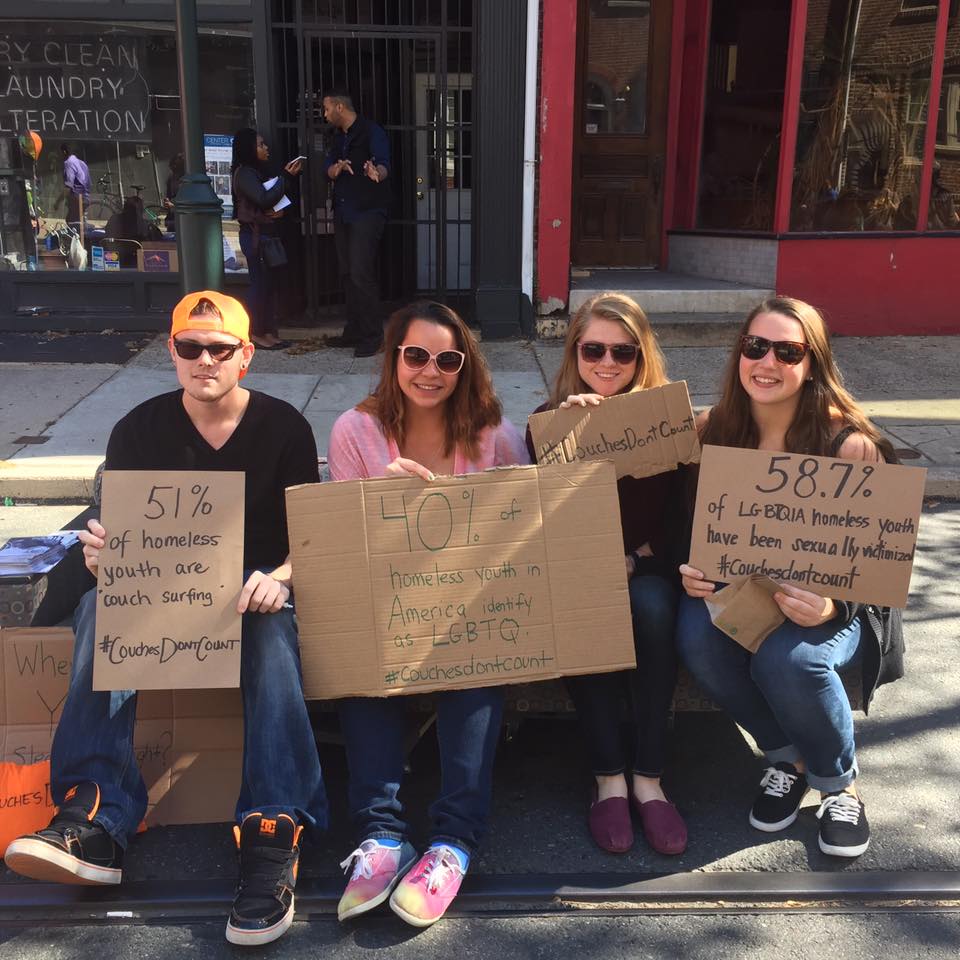 RY CLEAN
LAUNDRY
LTERATION
CENTER
51%
of homeless
youth are
"couch surfing"
#CouchesDontCount
40% of
homeless youth in
America identify
as LGBTQ.
#Couchesdontcount
#CouchesDontCount
58.7%
of LGBTQIA homeless youth
have been sexually victimized
#Couchesdontcount
DC